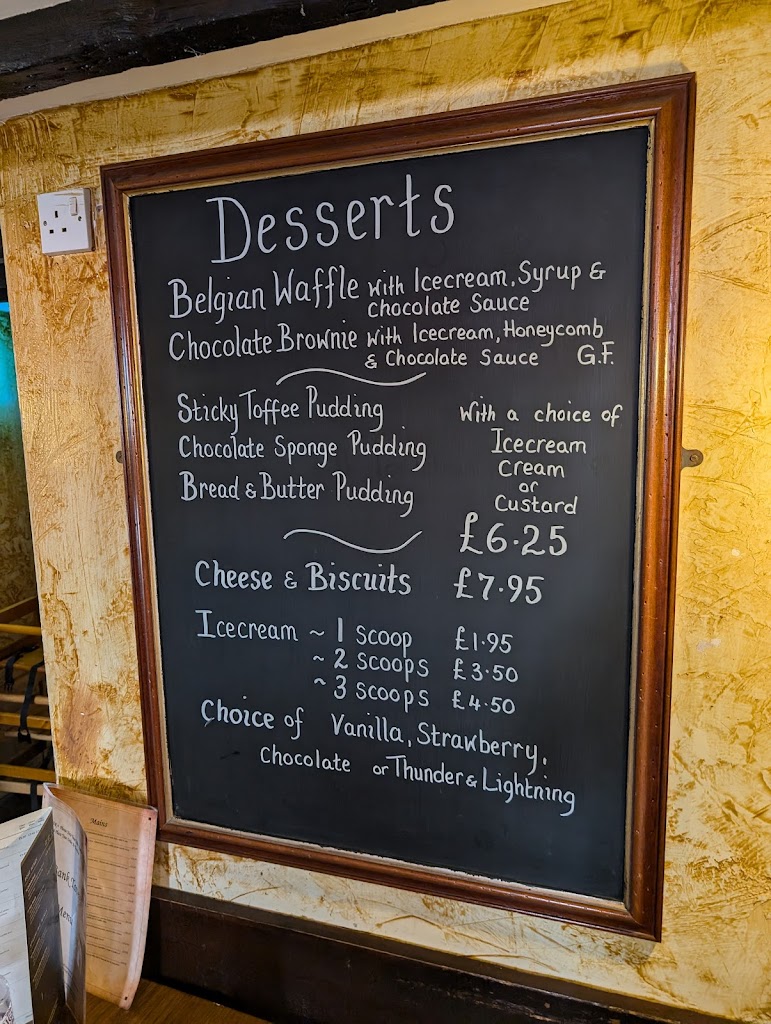 Desserts
Belgian Waffle with Icecream, Syrup &
chocolate Sauce
Chocolate Brownie with Icecream, Honeycomb
& Chocolate Sauce G.F.
Sticky Toffee Pudding
Chocolate Sponge Pudding
Bread & Butter Pudding
With a choice of
Icecream
Cream
or
Custard
£6.25
Cheese & Biscuits £7.95
Icecream ~ 1 scoop £1.95
~ 2 scoops £3.50
~ 3 scoops £4.50
Choice of Vanilla, Strawberry,
Chocolate or Thunder & Lightning
Mains
Menu